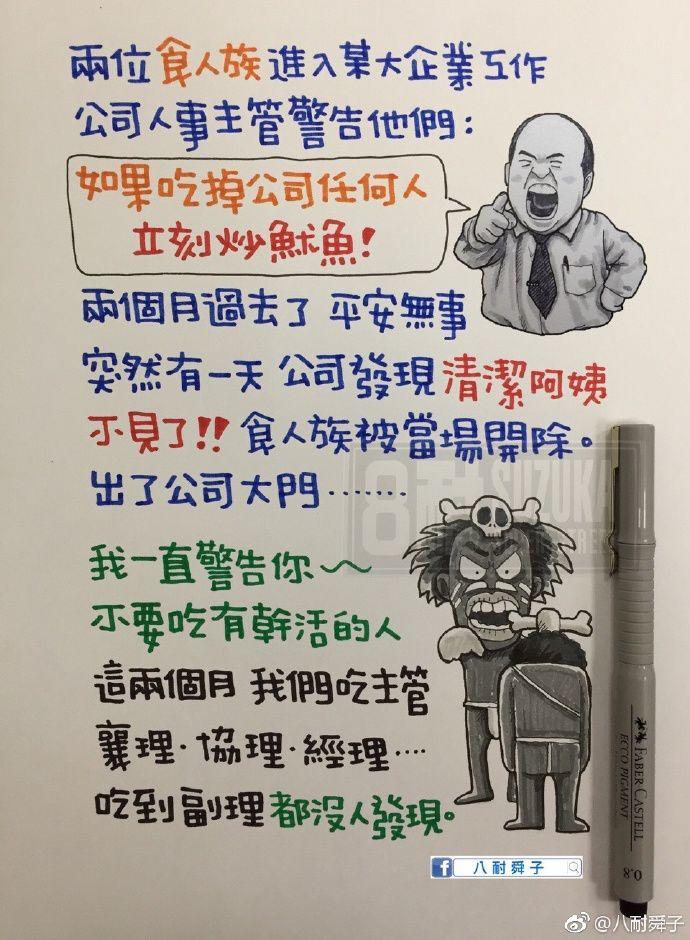 兩位食人族進入某大企業工作
公司人事主管警告他們:
如果吃掉公司任何人
立刻炒魷魚!
兩個月過去了 平安無事
突然有一天 公司發現清潔阿姨
不見了!! 食人族被當場開除。
出了公司大門……..
我一直警告你~~
不要吃有幹活的人
這兩個月 我們吃主管
襄理·協理·經理····
吃到副理都沒人發現。
8耐 SUZUKA
FABER CASTELL
ECCO PIGMENT
0.8
f 八耐舜子
@八耐舜子